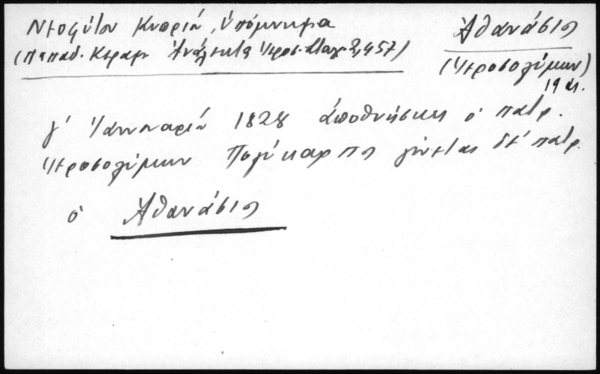 Νεοφύτου Κυπρίου, Ὑπόμνημα
(Παπαδ. Κεραμ. Ἀνάλεκτα Ἱεροσ. Σταχ. 2, 457)
Ἀθανάσιος
(Ἱεροσολύμων)
19 αι.
γ' Ἰανουαρίου 1828 ἀποθνήσκει ὁ πατρ.
Ἱεροσολύμων Πολύκαρπος γίνεται δὲ πατρ.
ὁ Ἀθανάσιος